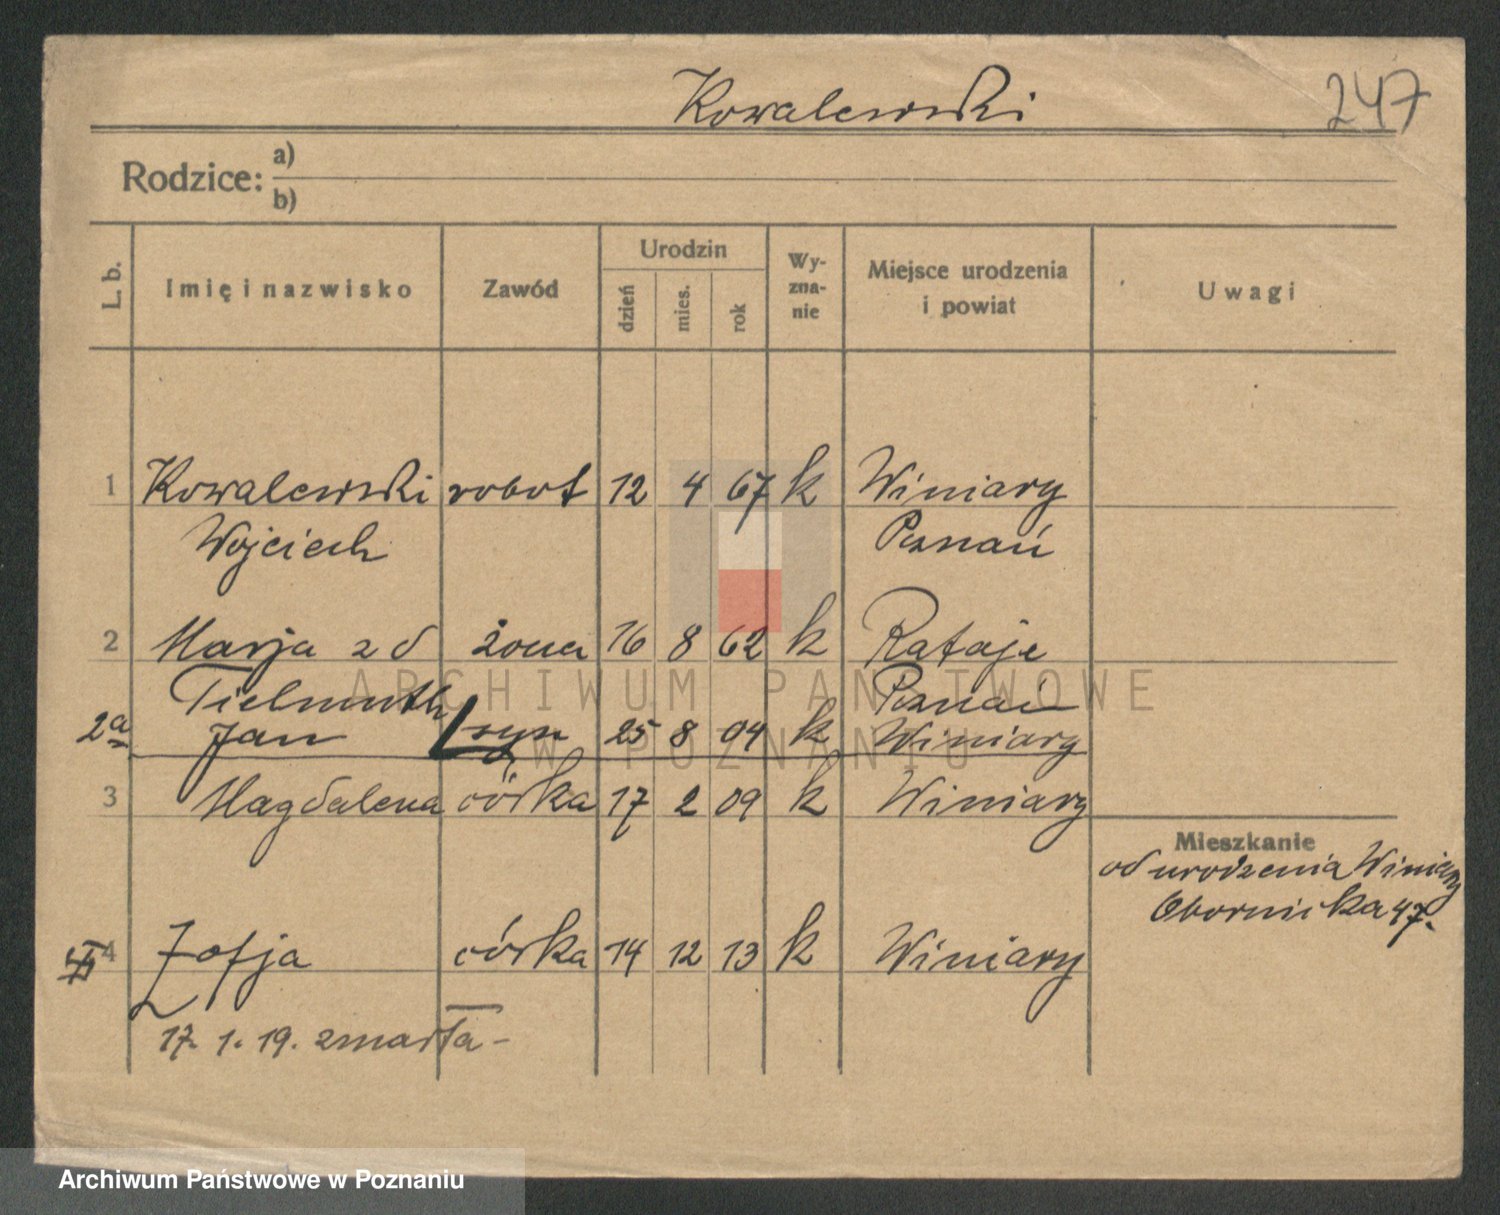 Kowalewski 247
Rodzice: a)
b)
L. b. Imię i nazwisko Zawód Urodzin dzień mies. rok Wy-zna-nie Miejsce urodzenia i powiat Uwagi
1 Kowalewski robot 12 4 67 k Winiary
Wojciech Poznań
2 Marja zd żona 16 8 62 k Rataje
Tielmuth Poznań
2a Jan syn 25 8 04 k Winiary
3 Magdalena córka 17 2 09 k Winiary
Mieszkanie
od urodzenia Winiary
Obornicka 47.
4 Zofja córka 14 12 13 k Winiary
17. 1. 19. zmarła -
ARCHIWUM PAŃSTWOWE
W POZNANIU
Archiwum Państwowe w Poznaniu